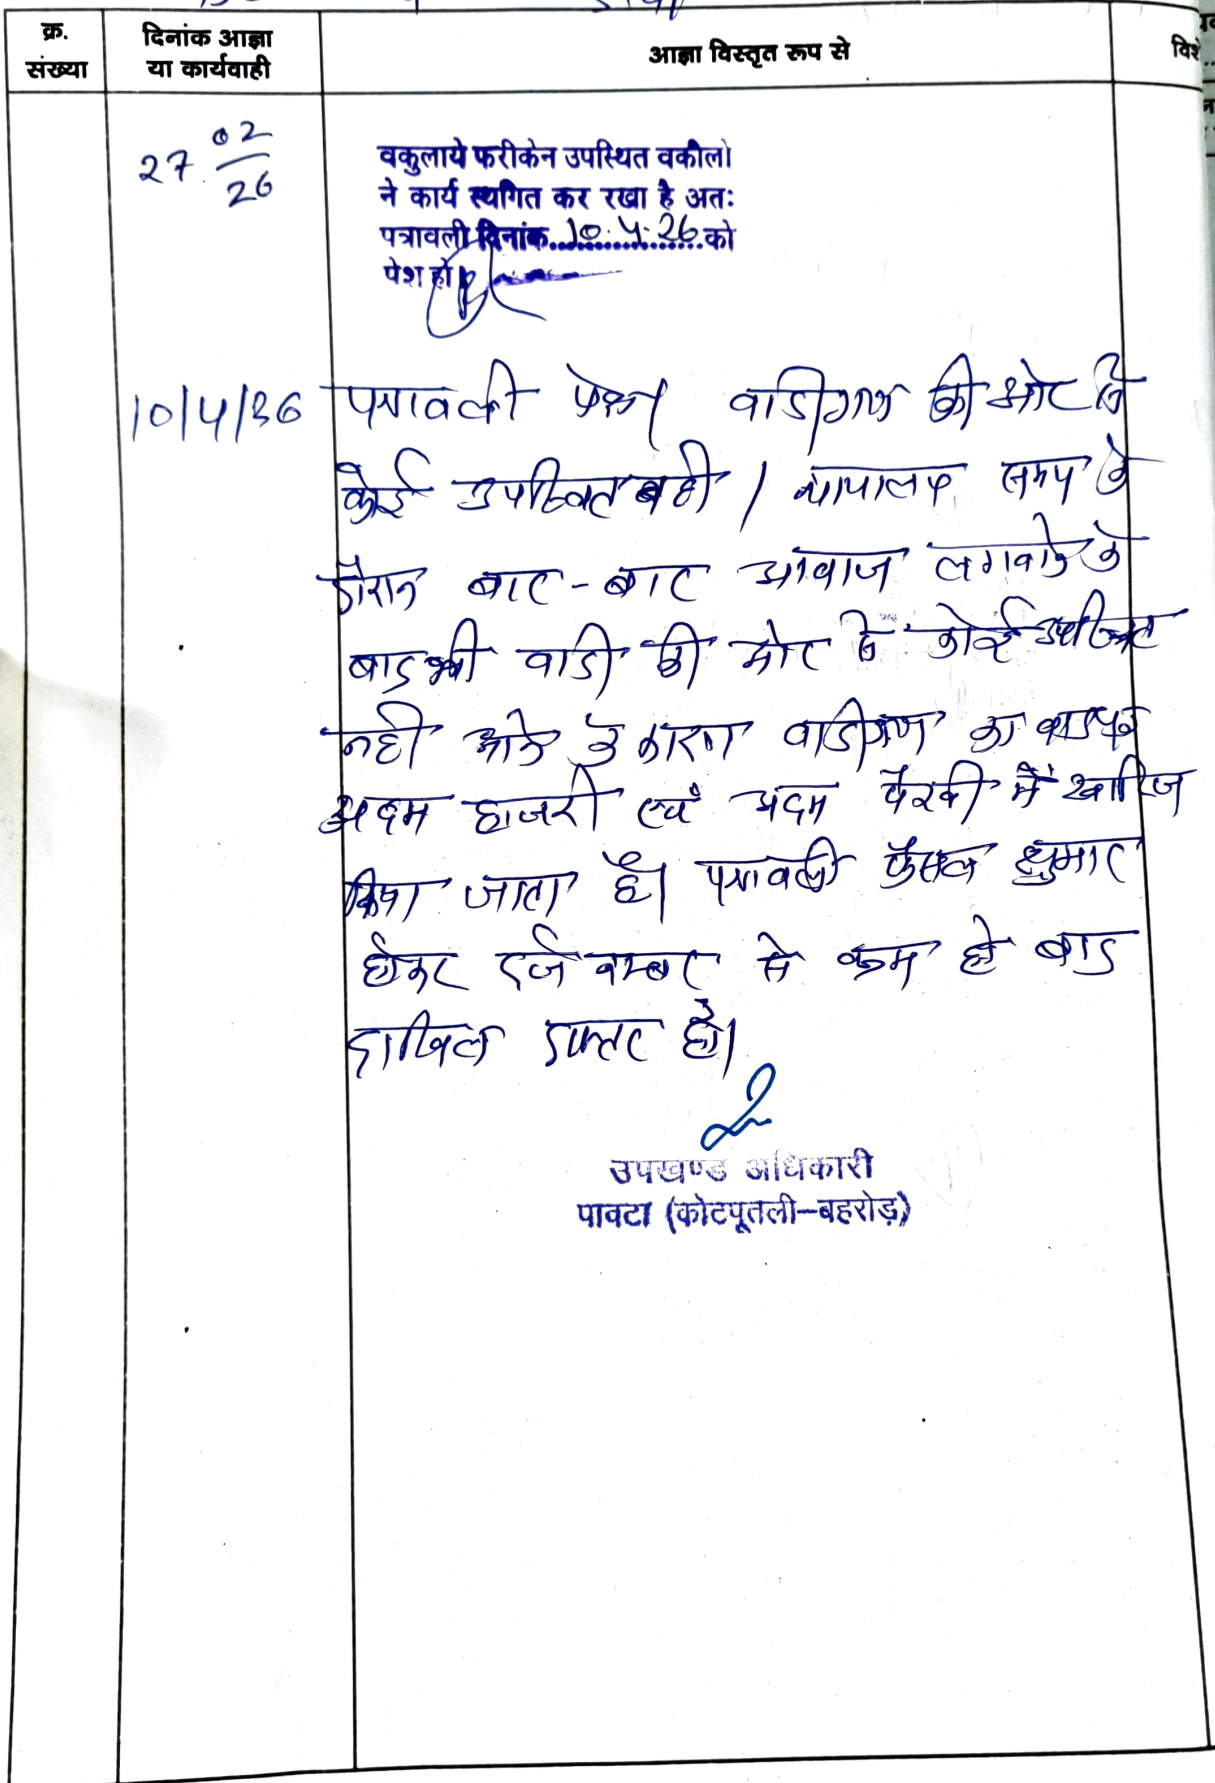 क्र. संख्या
दिनांक आज्ञा या कार्यवाही
आज्ञा विस्तृत रूप से
27.02/26
वकुलाये फरीकेन उपस्थित वकीलो
ने कार्य स्थगित कर रखा है अतः
पत्रावली दिनांक...10.4.26...को
पेश हो।
10/4/26
पत्रावली पेश। वादीगण की ओर से
कोई उपस्थित नही। न्यायालय समय के
दौरान बार-बार आवाज लगवाने के
बाद भी वादी की ओर से कोई उपस्थित
नही आने के कारण वादीगण का वादपत्र
अदम हाजरी एवं अदम पैरवी में खारिज
किया जाता है। पत्रावली फैसल शुमार
होकर दर्ज नम्बर से कम हो बाद
दाखिल दफ्तर हो।
उपखण्ड अधिकारी
पावटा (कोटपूतली-बहरोड़)